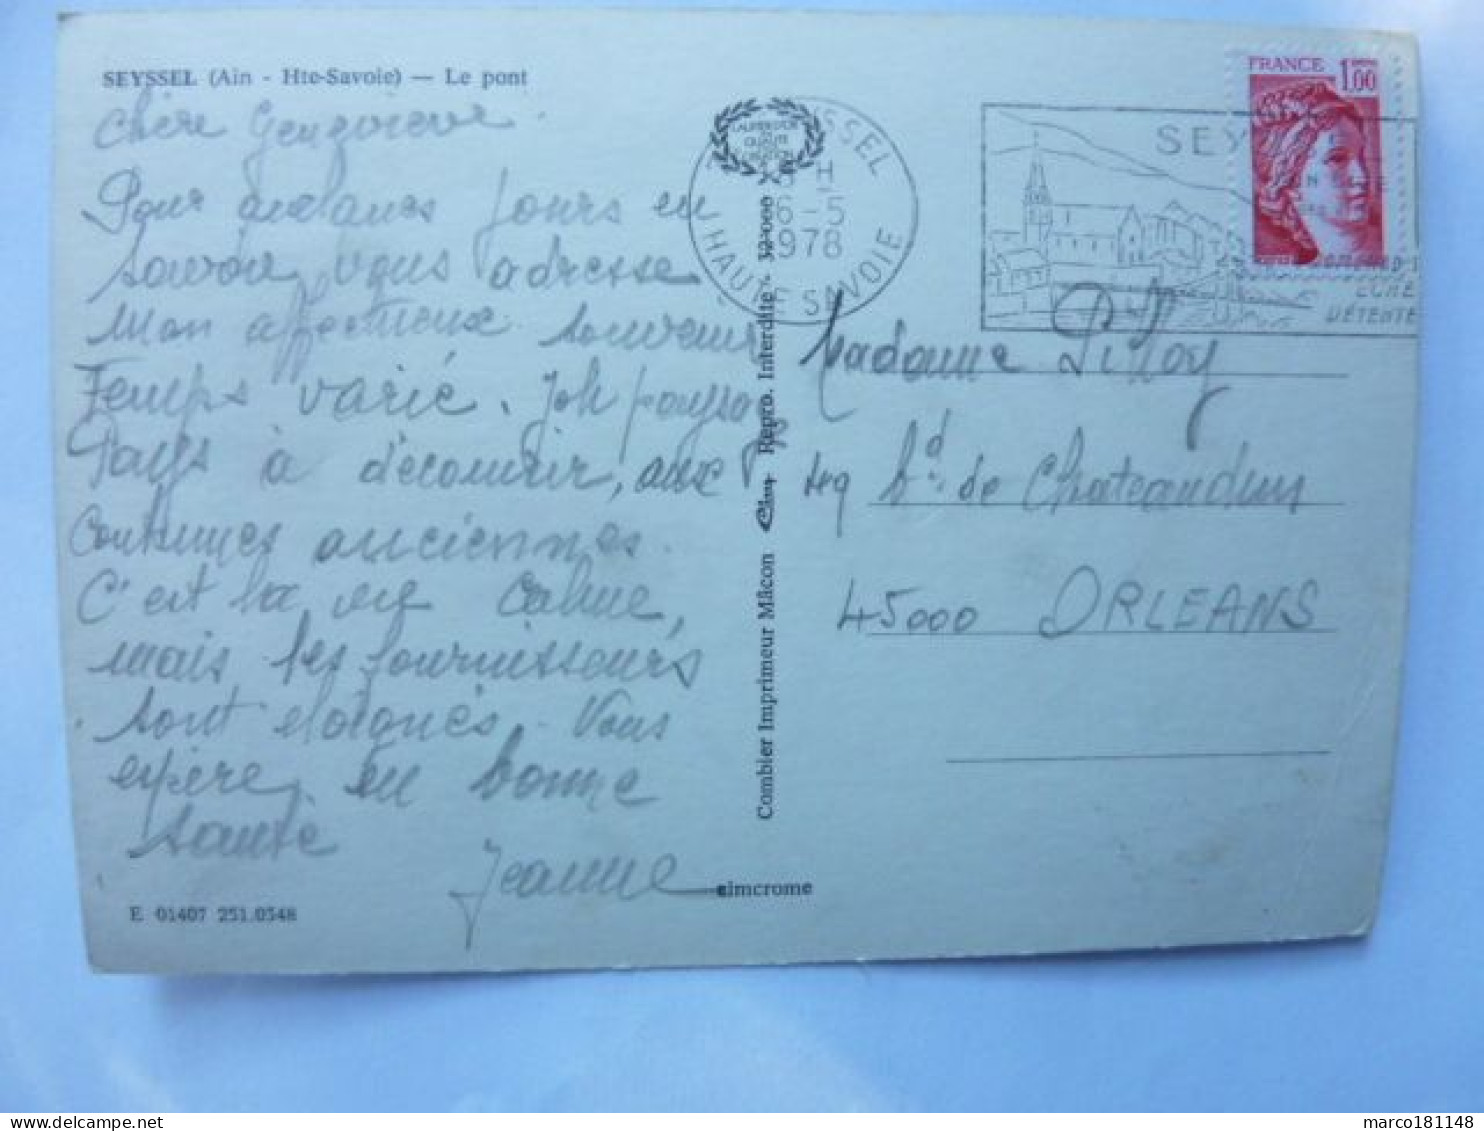 SEYSSEL (Ain - Hte-Savoie) — Le pont
Chère Geneviève.
Pour quelques jours en
Savoie, vous adresse
mon affectueux souvenir
Temps varié. Joli paysage
Pays à découvrir, aux
Coutumes anciennes.
C'est la vie calme,
mais les fournisseurs
sont eloignés. Vous
espère en bonne
santé
Jeanne
E 01407 251.0348
Combier Imprimeur Mâcon Cim Repro. Interdite. 32-000
cimcrome
SSEL
H
6-5
1978
HAUTE SAVOIE
SEY
DÉTENTE
FRANCE 1,00
Madame Pilloy
49 bd. de Chateaudun
45000 ORLEANS
marco181148